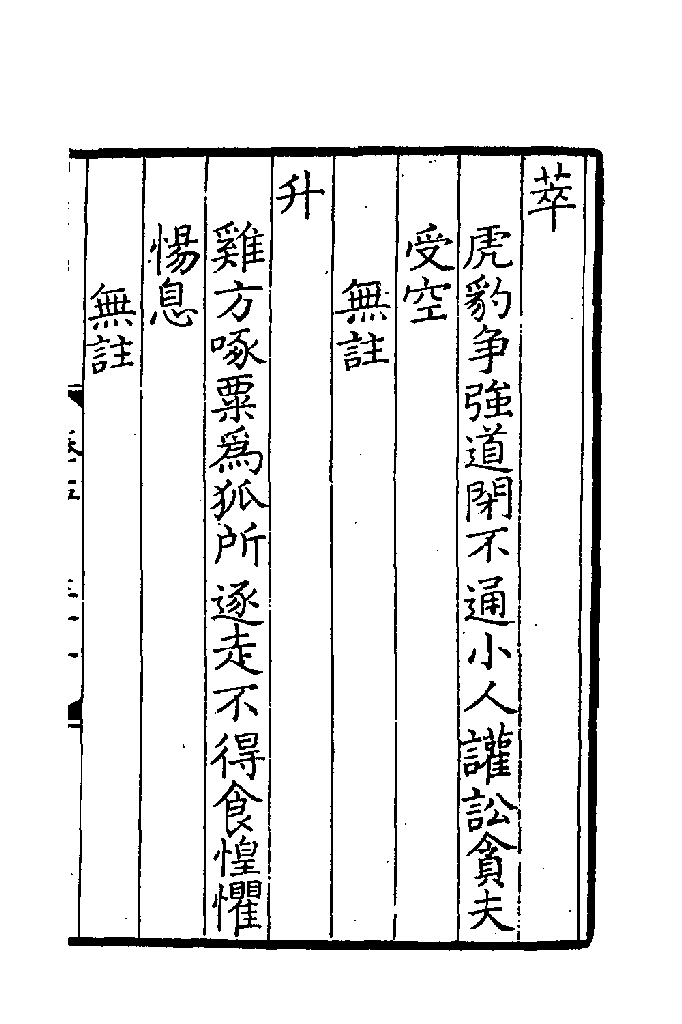 萃
虎豹争強道閉不通小人讙訟貪夫
受空
無註
升
雞方啄粟爲狐所逐走不得食惶懼
惕息
無註